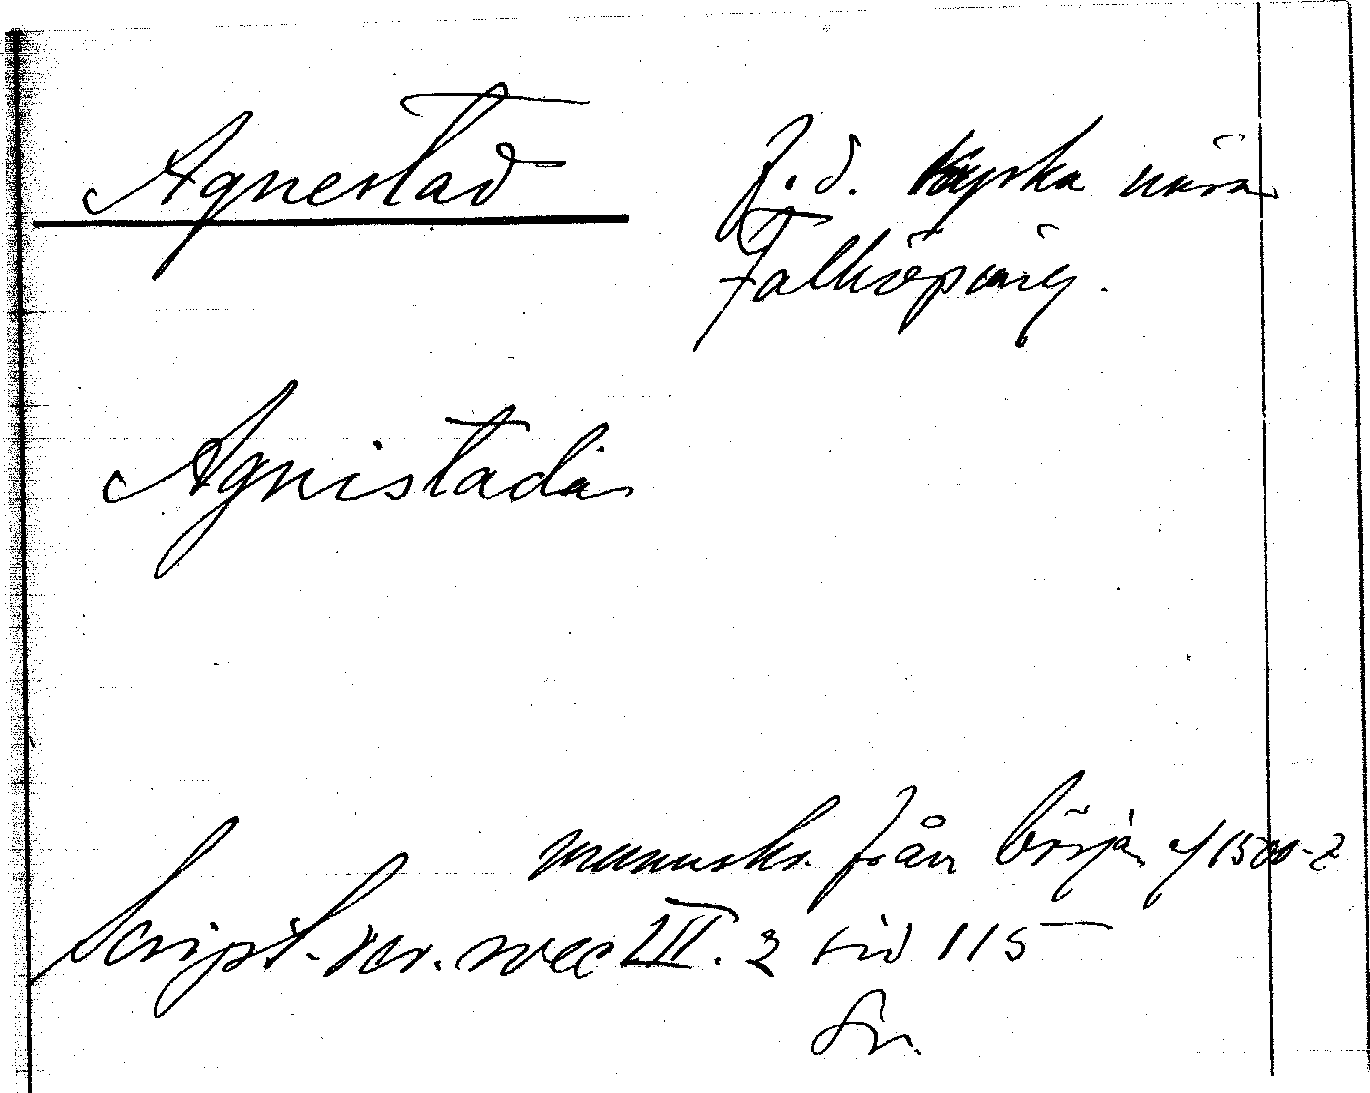 Agnestad
f. d. kyrka nära
Falköping.
Agnistada
manuskr. från börja af 1500-t
Script. rer. svec III. 2 sid 115